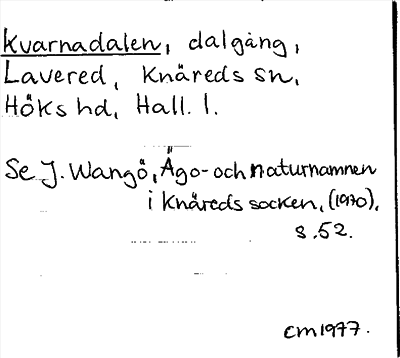 Kvarnadalen, dalgång,
Lavered, Knäreds sn,
Höks hd, Hall. l.
Se J. Wangö, Ägo- och naturnamnen
i Knäreds socken, (1970),
s. 52.
CM1977.